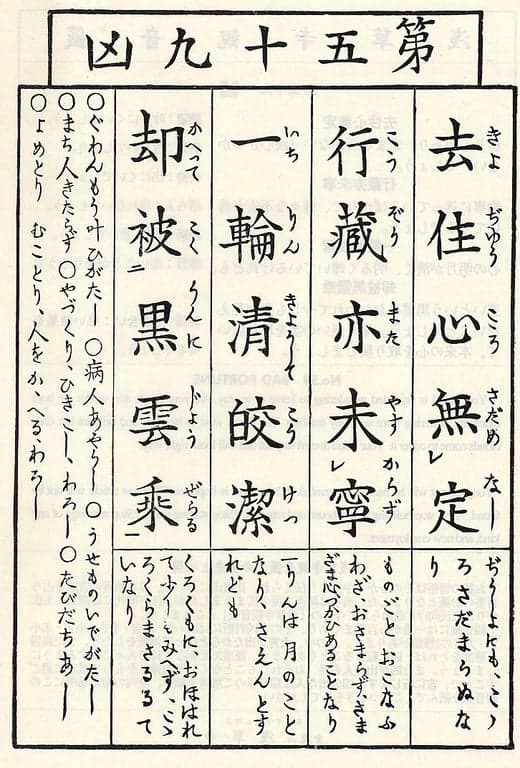 第五十九凶
去住心無レ定
きよぢゆうこころさだめなし
ぢうよにもこゝろさだまらぬなり
行藏亦未レ寧
こうぞうまたやすからず
ものごとおこなふわざ、おさまらず、さまざま心づかひあることなり
一輪清皎潔
いちりんきよらかにしてこうけつ
一りんは月のことなり、さえんとすれども
却被二黒雲乘一
かつてこくうんにじようぜらる
くろくもに、おほはれて少しもみへず、こゝろくらまさるるていなり
○ぐわんもう叶ひがたし ○病人あやうし ○うせものいでがたし
●まち人きたらず ○やづくり、ひきこし、わろし ○たびだちあし
○よめとり むことり 人をかゝへる、わろし